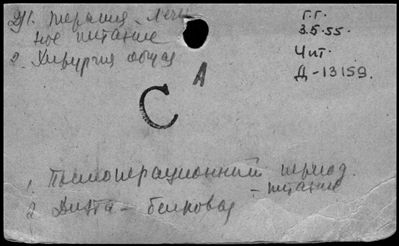 1. Терапия - Лечеб
ное питание
2. Хирургия общая
Г.Г.
3.5.55.
Чит.
Д-13159.
А
С
1. Послеоперационный период.
- питание
2. Диэта - белковая